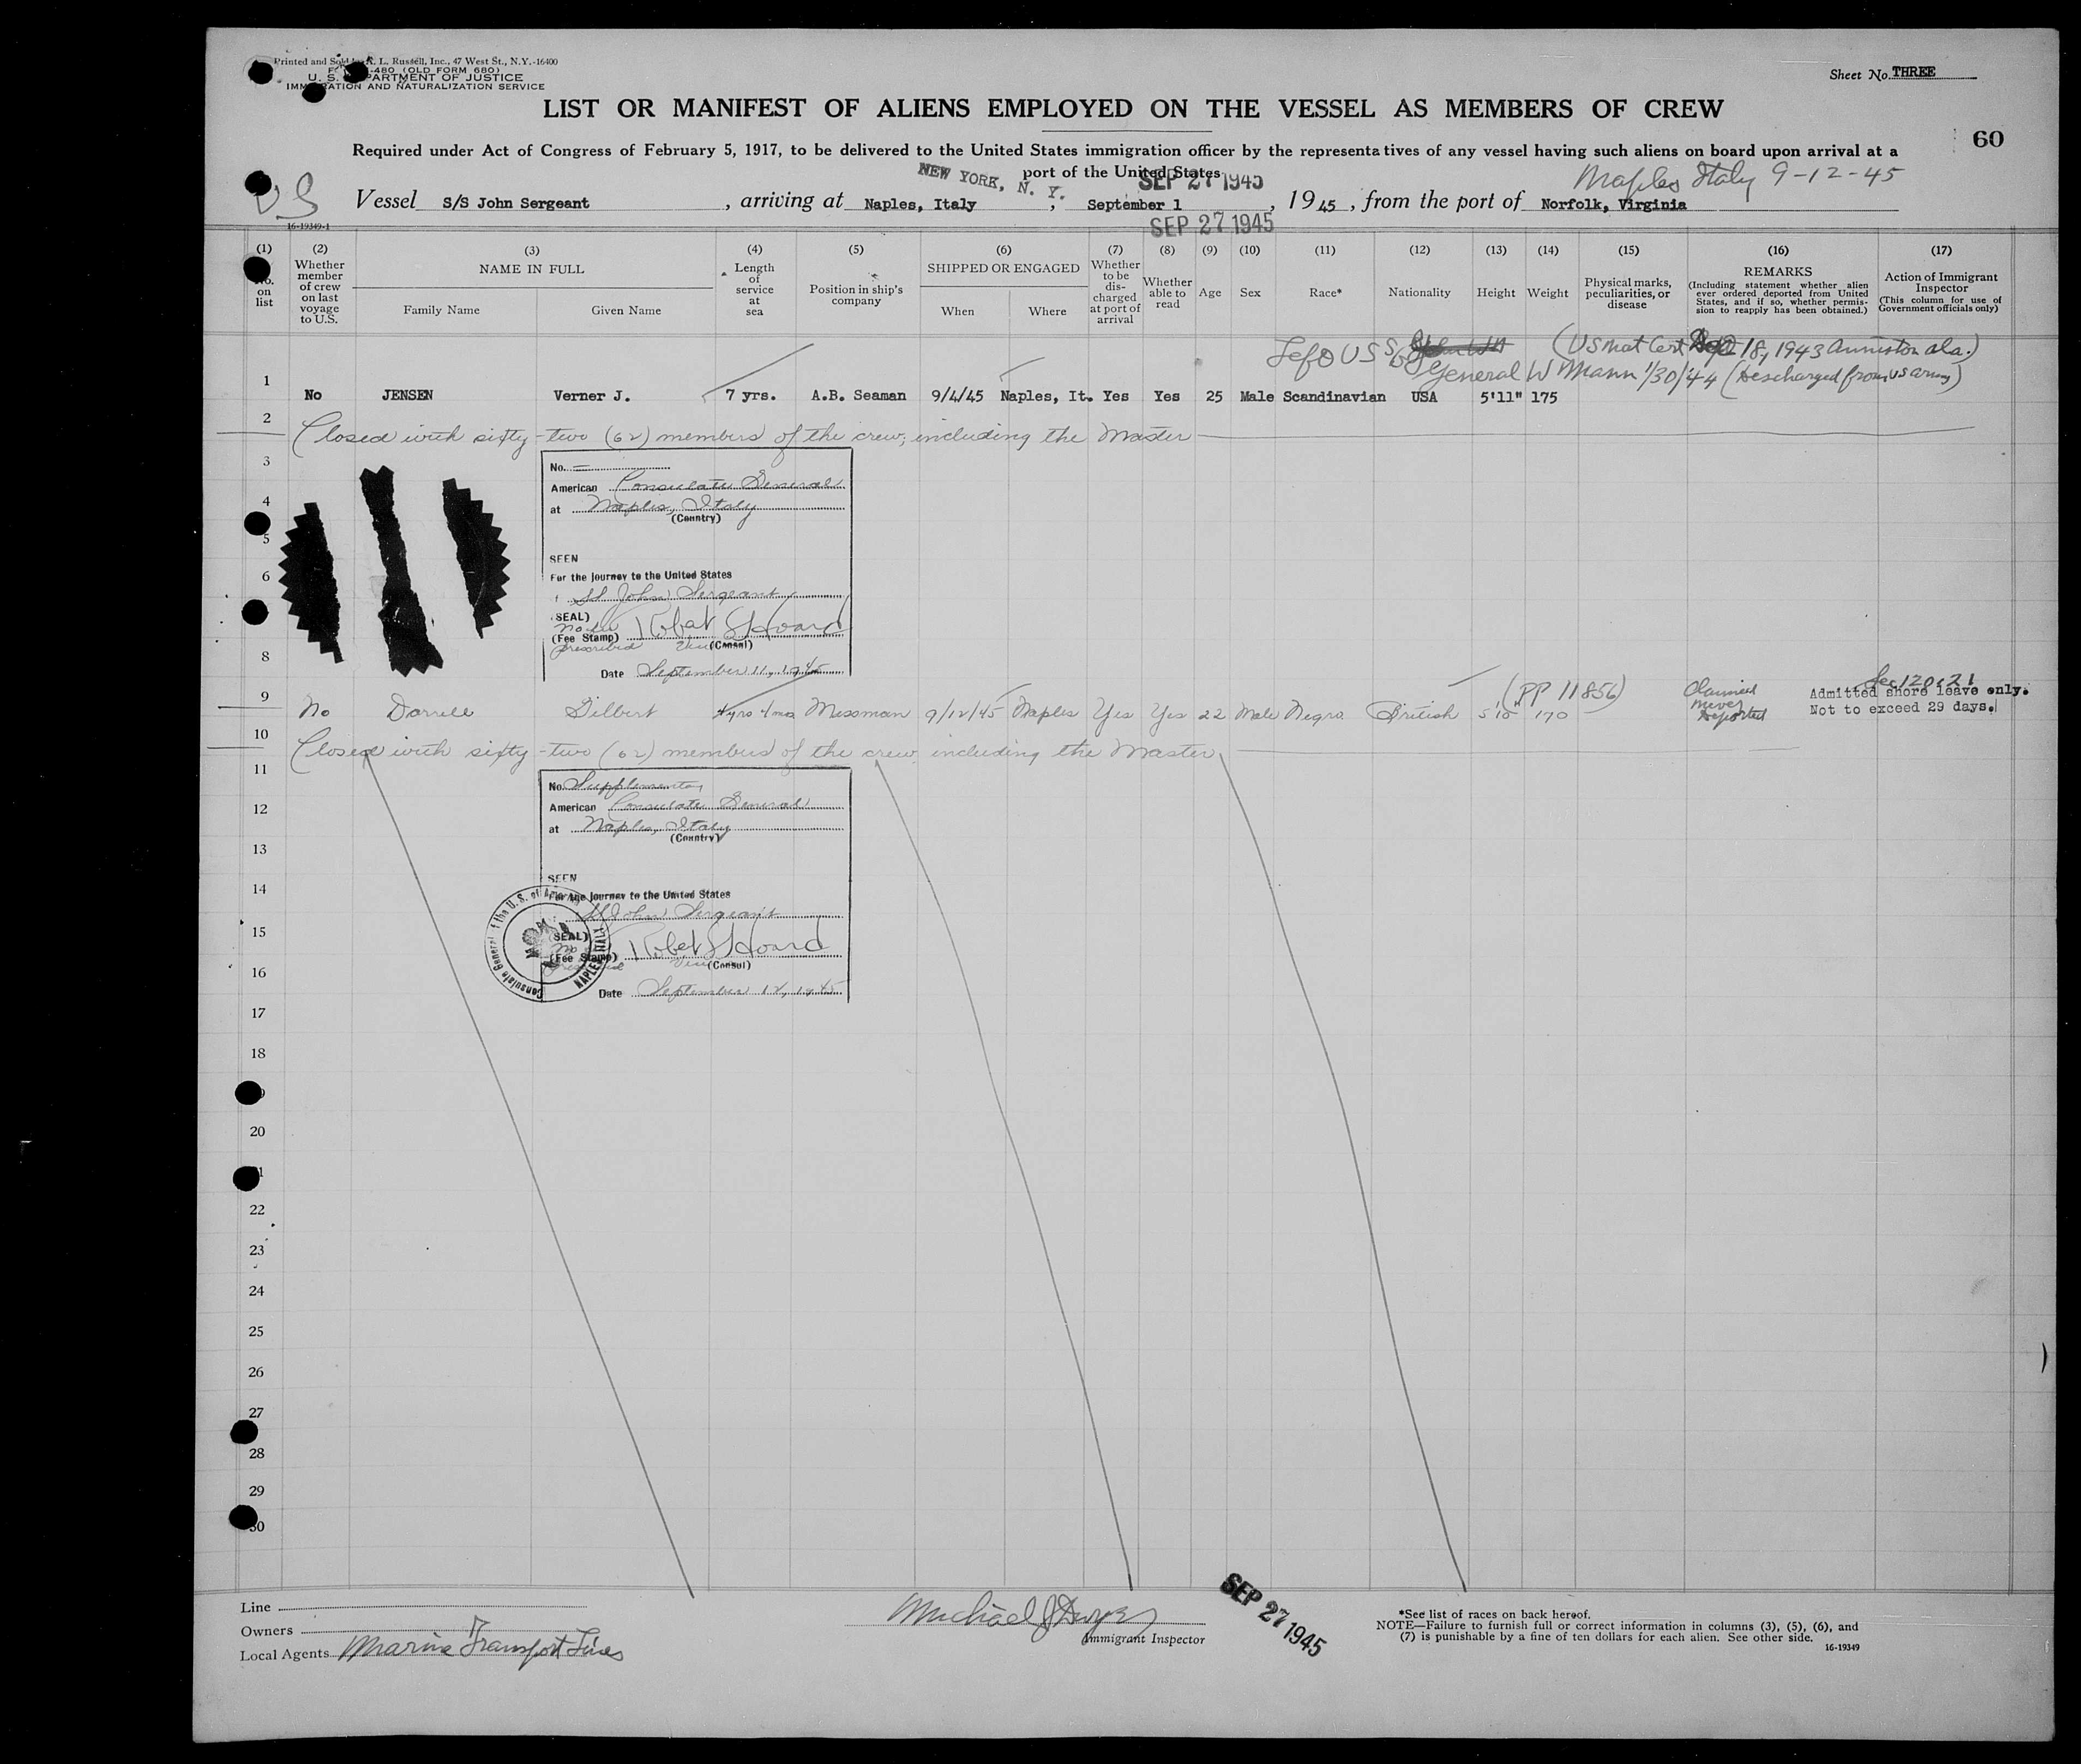 Printed and Sold by R. L. Russell, Inc., 47 West St., N.Y.-16400
-480 (OLD FORM 680)
U. S. DEPARTMENT OF JUSTICE
IMMIGRATION AND NATURALIZATION SERVICE
Sheet No. THREE
LIST OR MANIFEST OF ALIENS EMPLOYED ON THE VESSEL AS MEMBERS OF CREW
60
Required under Act of Congress of February 5, 1917, to be delivered to the United States immigration officer by the representatives of any vessel having such aliens on board upon arrival at a
port of the United States
NEW YORK, N. Y. SEP 27 1945 Naples Italy 9-12-45
Vessel S/S John Sergeant, arriving at Naples, Italy, September 1, 1945, from the port of Norfolk, Virginia
SEP 27 1945
16-19349-1
(1) (2) (3) (4) (5) (6) (7) (8) (9) (10) (11) (12) (13) (14) (15) (16) (17)
No. on list
Whether member of crew on last voyage to U.S.
NAME IN FULL
Family Name Given Name
Length of service at sea
Position in ship's company
SHIPPED OR ENGAGED
When Where
Whether to be discharged at port of arrival
Whether able to read
Age
Sex
Race*
Nationality
Height
Weight
Physical marks, peculiarities, or disease
REMARKS
(Including statement whether alien ever ordered deported from United States, and if so, whether permission to reapply has been obtained.)
Action of Immigrant Inspector
(This column for use of Government officials only)
(US Nat Cert 18, 1943 Anniston Ala.)
General W Mann 1/30/44 (Discharged from US army)
1 No JENSEN Verner J. 7 yrs. A.B. Seaman 9/4/45 Naples, It. Yes Yes 25 Male Scandinavian USA 5'11" 175
2
Closed with sixty-two (62) members of the crew, including the Master
3
4
5
6
8
No.
American Consulate General
at Naples, Italy
(Country)
SEEN
For the journey to the United States
SS John Sergeant
(SEAL)
No fee
(Fee Stamp) Robert S Hoard
prescribed Vice (Consul)
Date September 11, 1945
(PP 11856)
Sec 120.21
Admitted shore leave only.
Not to exceed 29 days.
Claimed never deported
9 No Darrell Gilbert 4 yrs 4 mo Messman 9/12/45 Naples Yes Yes 22 Male Negro British 5'10 170
10
Closed with sixty-two (62) members of the crew, including the Master
11
12
13
14
15
16
No. Supplementary
American Consulate General
at Naples, Italy
(Country)
SEEN
For the journey to the United States
SS John Sergeant
(SEAL)
No
(Fee Stamp) Robert S Hoard
prescribed Vice (Consul)
Date September 12, 1945
Consulate General of the U. S. of America
NAPLES ITALY
17
18
20
22
23
24
25
26
27
28
29
30
Line
Owners
Local Agents Marine Transport Lines
Michael J Dwyer
Immigrant Inspector
SEP 27 1945
*See list of races on back hereof.
NOTE—Failure to furnish full or correct information in columns (3), (5), (6), and
(7) is punishable by a fine of ten dollars for each alien. See other side.
16-19349